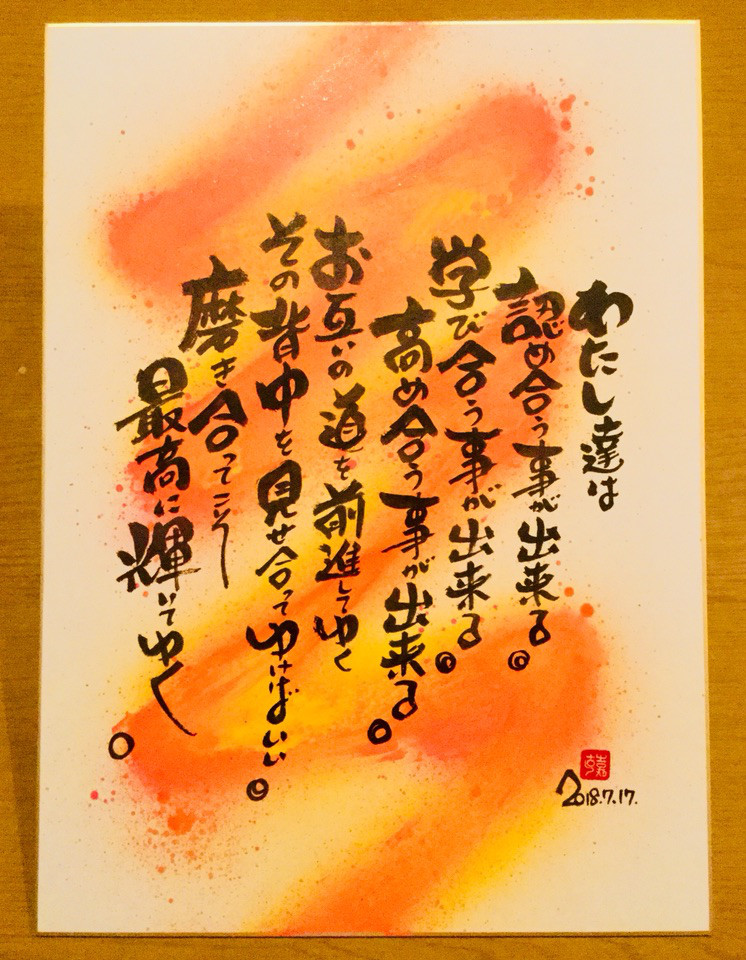 わたし達は
認め合う事が出来る。
学び合う事が出来る。
高め合う事が出来る。
お互いの道を前進してゆく
その背中を見せ合ってゆけばいい。
磨き合ってこそ
最高に輝いてゆく。
2018.7.17.